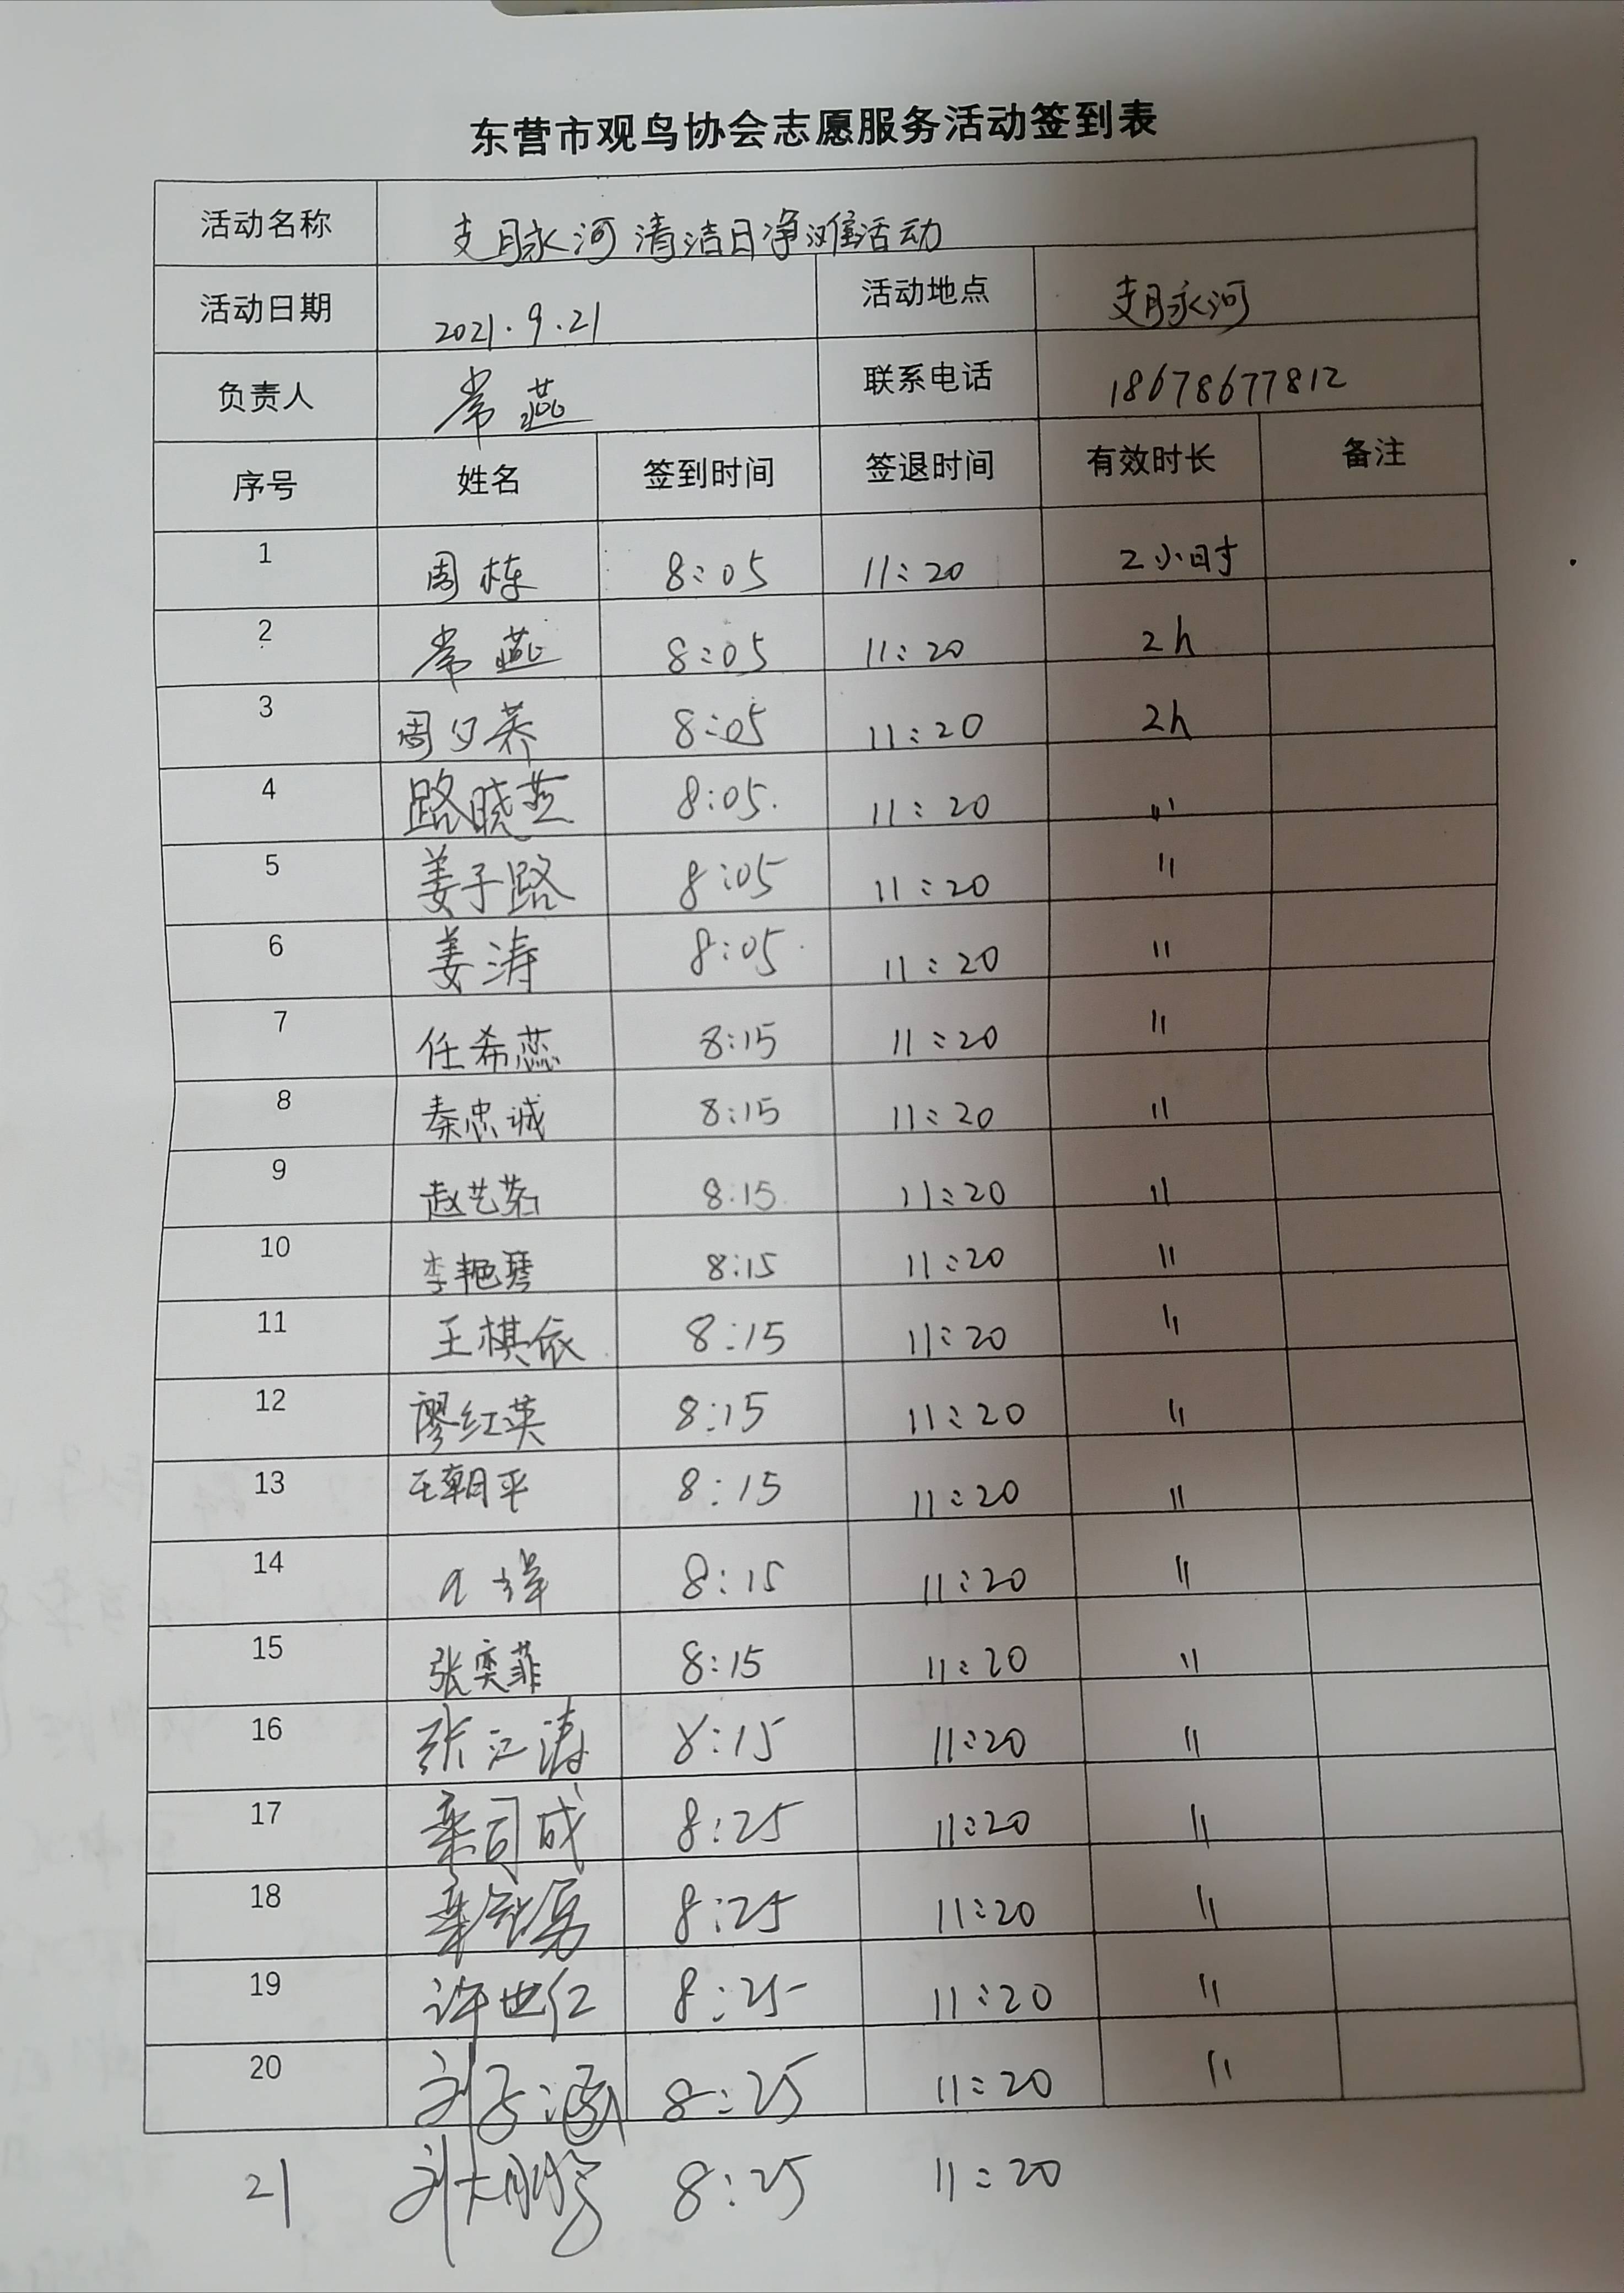 东营市观鸟协会志愿服务活动签到表
活动名称 支脉河清洁日净滩活动
活动日期 2021.9.21 活动地点 支脉河
负责人 常燕 联系电话 18678677812
序号 姓名 签到时间 签退时间 有效时长 备注
1 周栋 8:05 11:20 2小时
2 常燕 8:05 11:20 2h
3 周 8:05 11:20 2h
4 路晓芝 8:05 11:20 〃
5 姜子路 8:05 11:20 〃
6 姜涛 8:05 11:20 〃
7 任希蕊 8:15 11:20 〃
8 秦忠诚 8:15 11:20 〃
9 赵艺 8:15 11:20 〃
10 李艳琴 8:15 11:20 〃
11 王棋依 8:15 11:20 〃
12 廖红英 8:15 11:20 〃
13 王朝平 8:15 11:20 〃
14 8:15 11:20 〃
15 张奕菲 8:15 11:20 〃
16 张江涛 8:15 11:20 〃
17 栾司成 8:25 11:20 〃
18 栾 8:25 11:20 〃
19 许世仁 8:25 11:20 〃
20 刘子涵 8:25 11:20 〃
21 刘大鹏 8:25 11:20